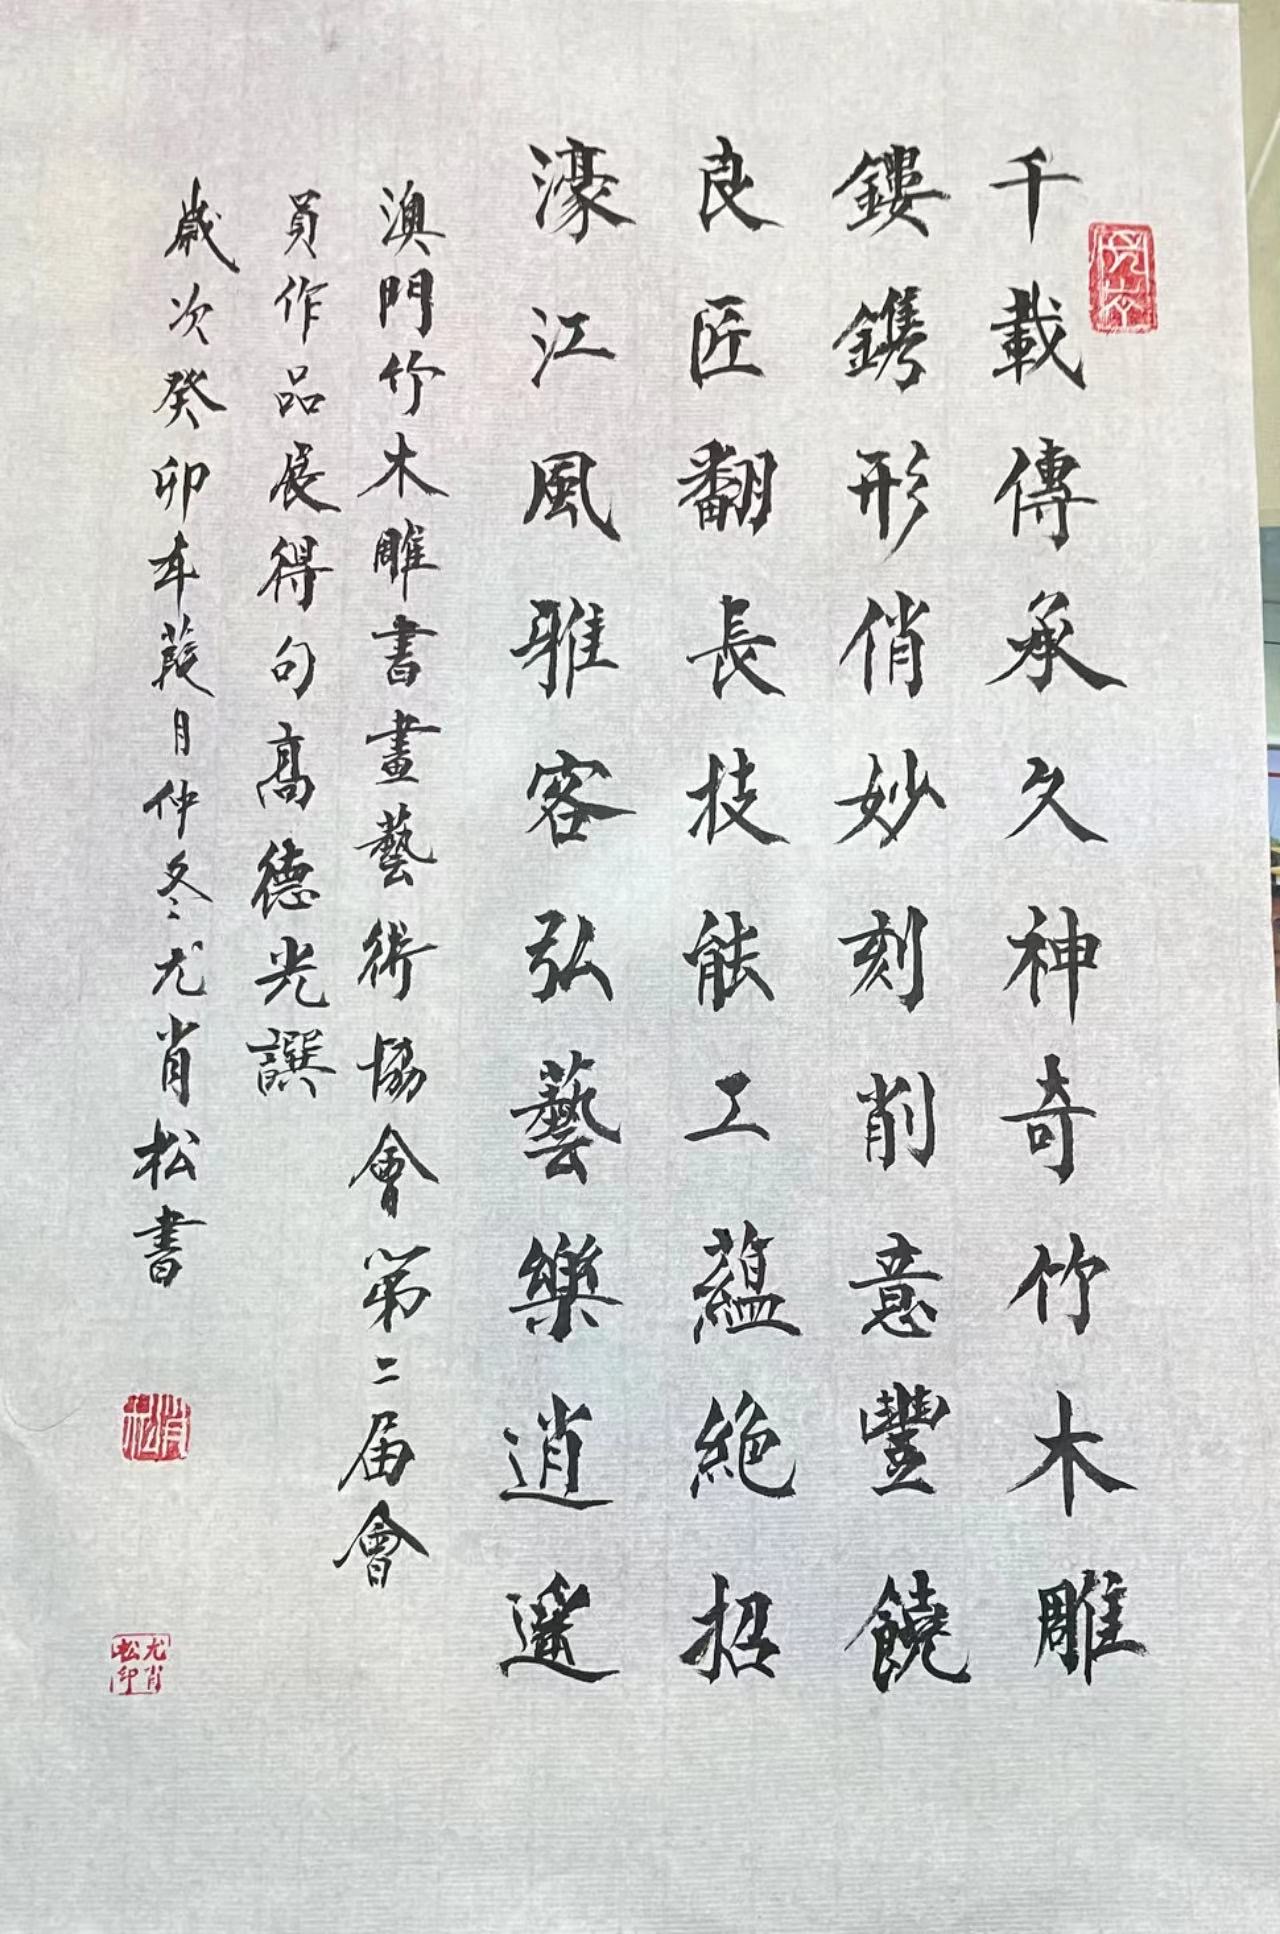 千載傳承久神奇竹木雕
鏤鐫形俏妙刻削意豐饒
良匠翻長技能工蘊絕招
濠江風雅客弘藝樂逍遙
澳門竹木雕書畫藝術協會第二届會
員作品展得句高德光譔
歲次癸卯年葭月仲冬尤肖松書
肖松
尤肖松印